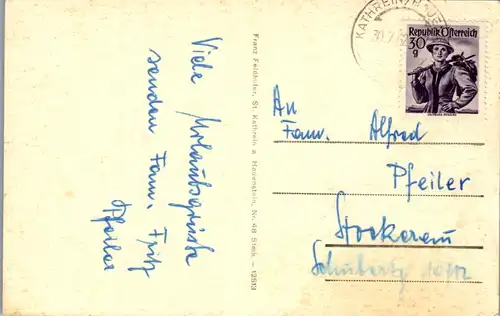 Viele Urlaubsgrüße
senden Fam. Fritz
Pfeiler
Franz Feldhofer, St. Kathrein a. Hauenstein, Nr. 48 Stmk. — 12513
KATHREIN
Republik Österreich
30
g
An
Fam. Alfred
Pfeiler
Stockerau